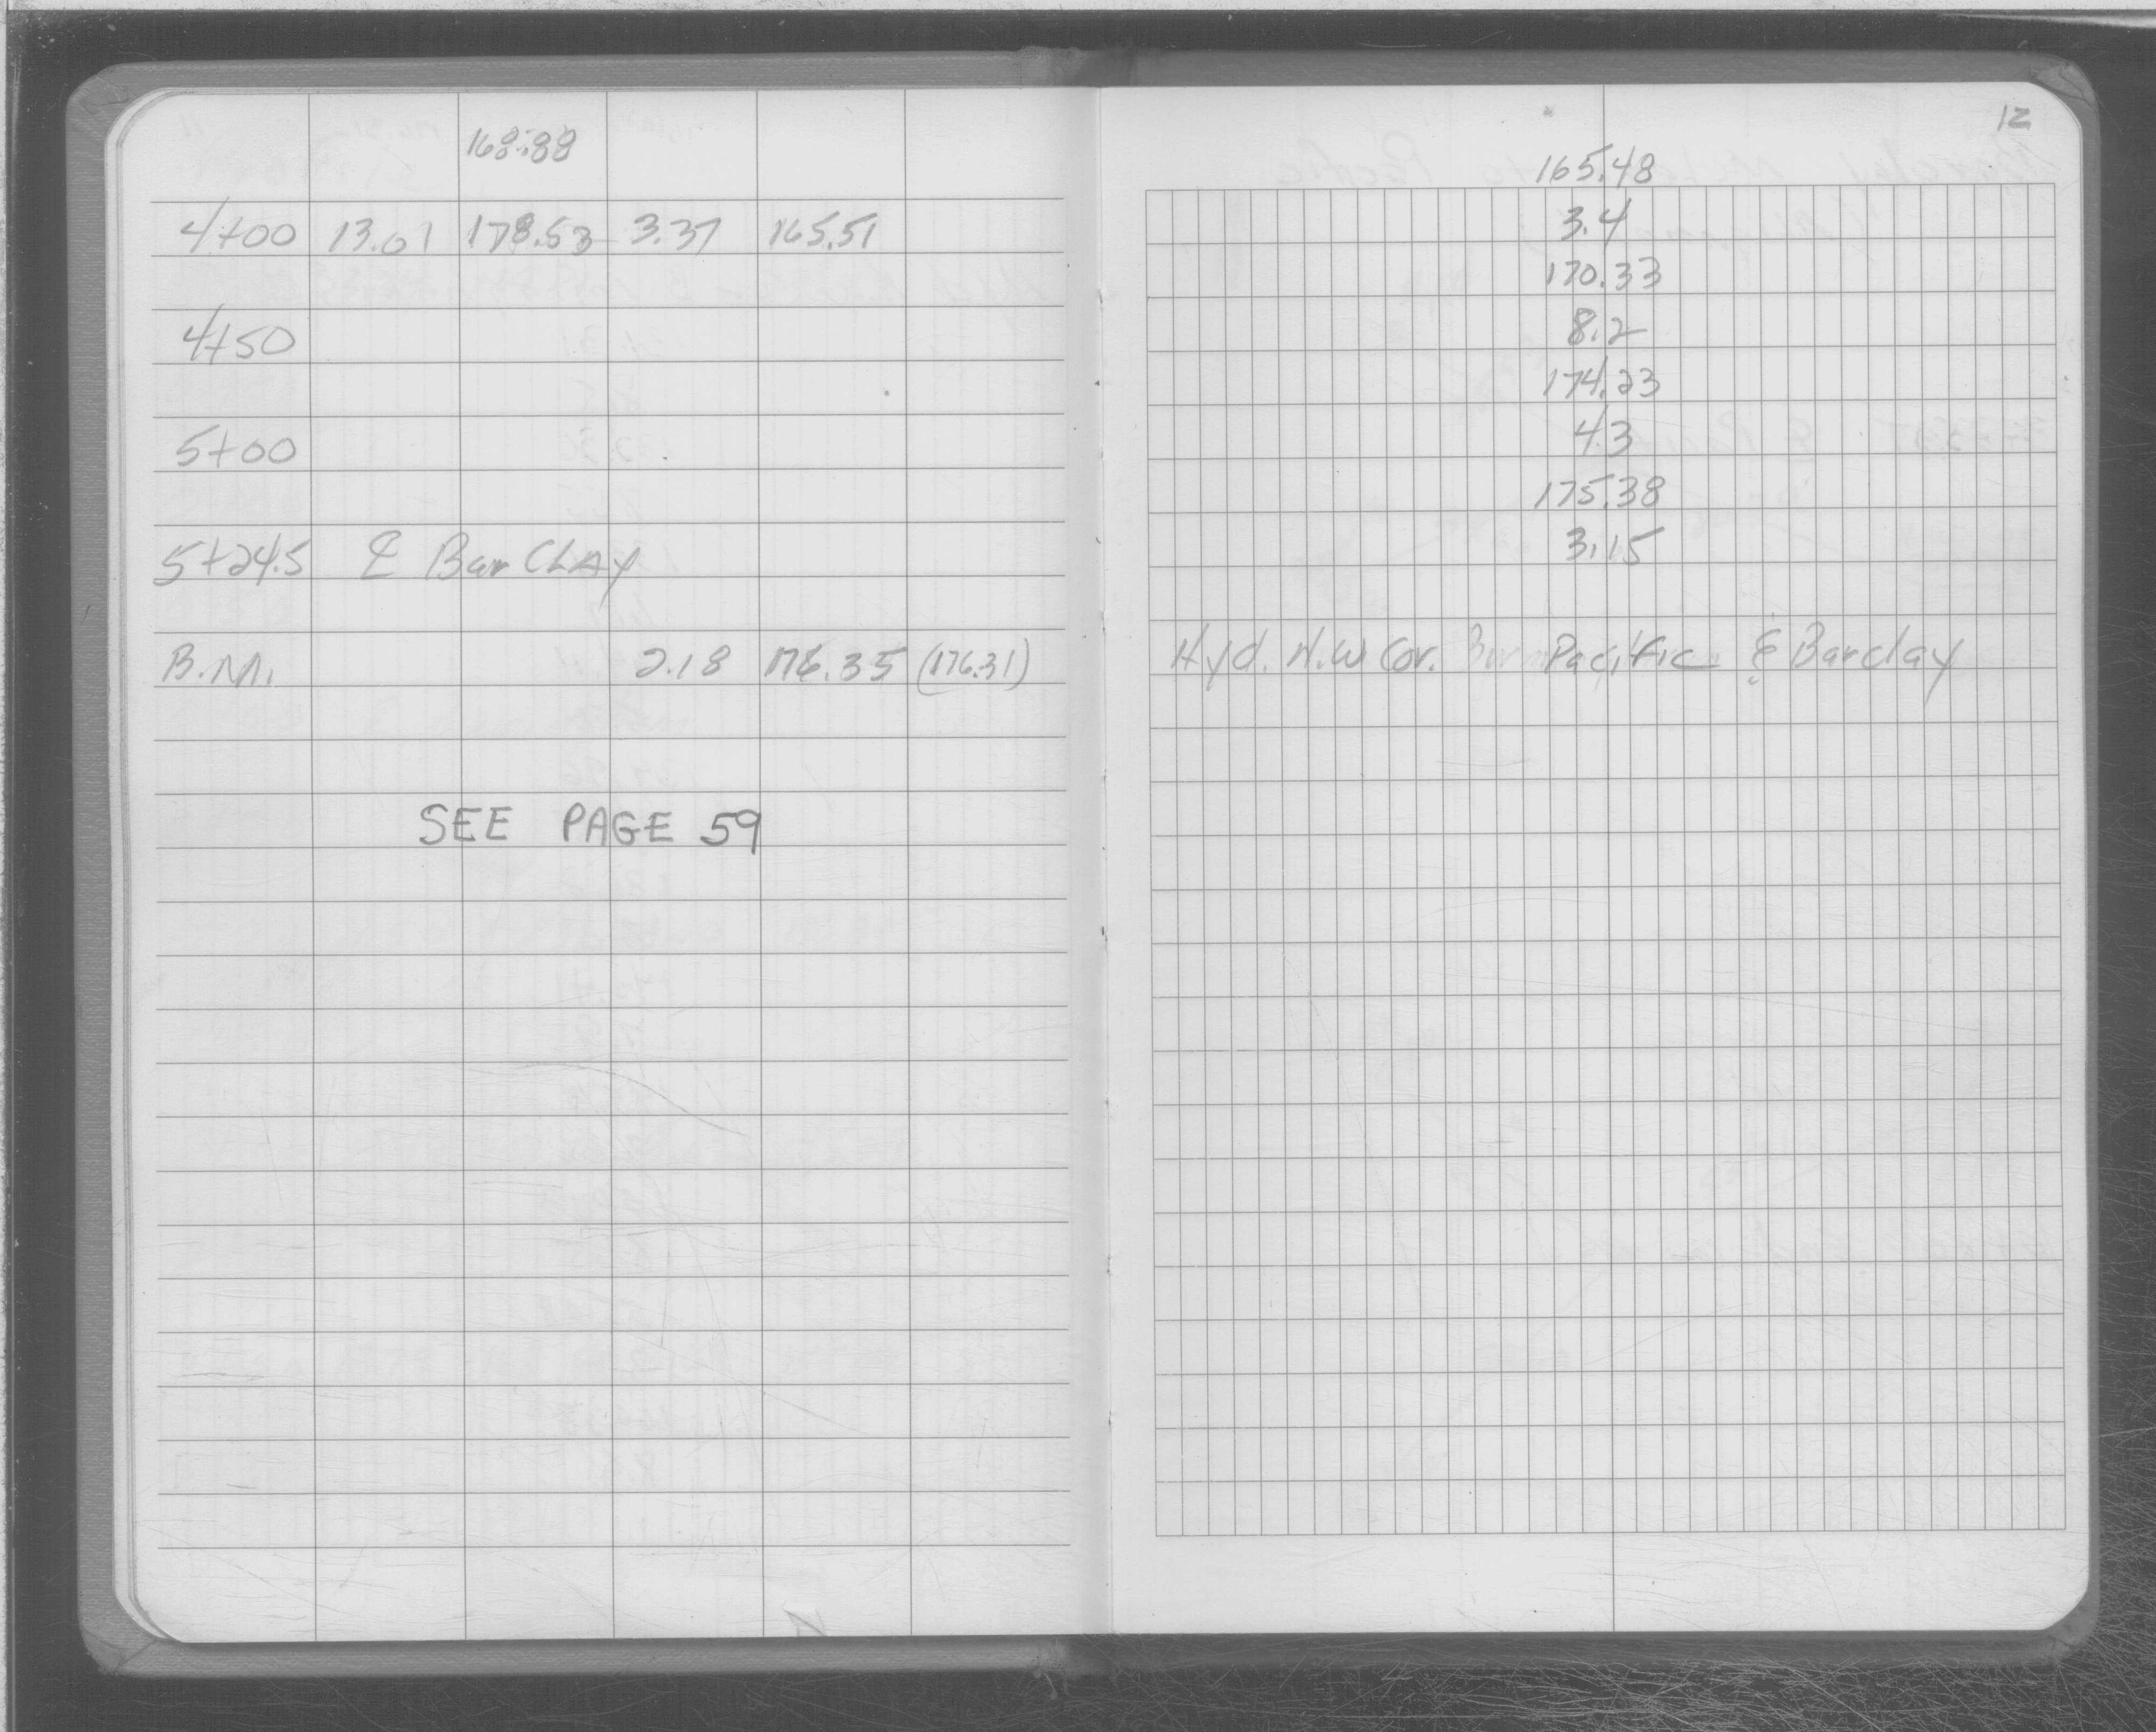 168.88
4+00 13.01 178.53 3.37 165.51
4+50
5+00
5+24.5 ℄ BarCLAy
B.M. 2.18 176.35 (176.31)
SEE PAGE 59
12
165.48
3.4
170.33
8.2
174.23
4.3
175.38
3.15
Hyd. N.W Cor. Pacific & Barclay